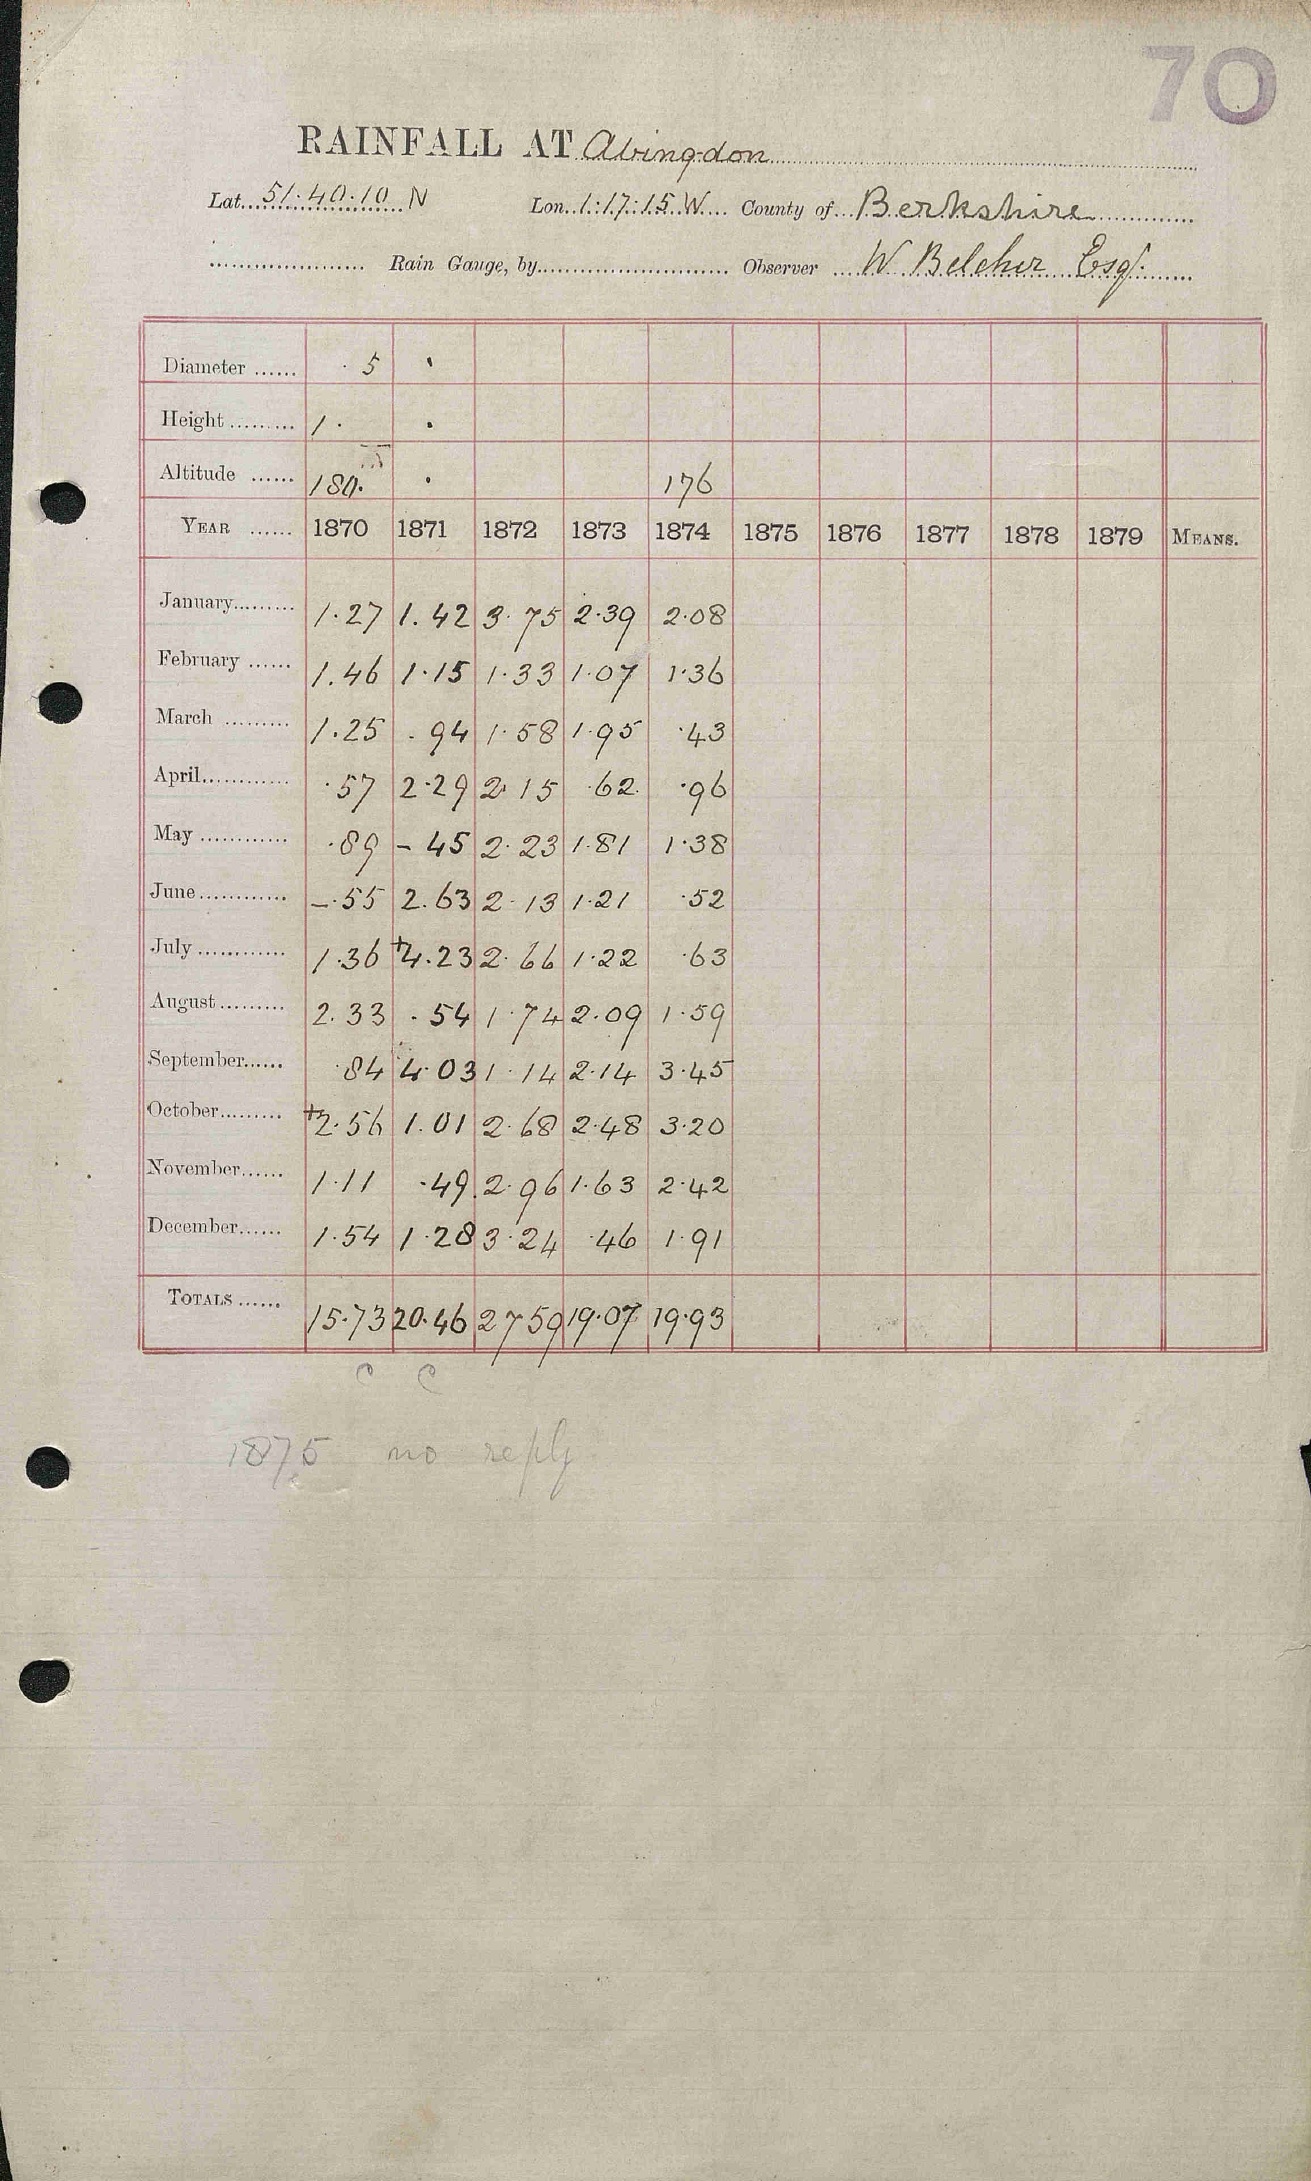 70
RAINFALL AT Abingdon
Lat. 51.40.10 N Lon. 1.17.15 W County of Berkshire
Rain Gauge, by Observer W Belcher Esq.
Diameter 5 "
Height 1. "
Altitude 180. " 176
YEAR 1870 1871 1872 1873 1874 1875 1876 1877 1878 1879 MEANS.
January 1.27 1.42 3.75 2.39 2.08
February 1.46 1.15 1.33 1.07 1.36
March 1.25 .94 1.58 1.95 .43
April .57 2.29 2.15 .62 .96
May .89 - 45 2.23 1.81 1.38
June -.55 2.63 2.13 1.21 .52
July 1.36 +4.23 2.66 1.22 .63
August 2.33 .54 1.74 2.09 1.59
September .84 4.03 1.14 2.14 3.45
October +2.56 1.01 2.68 2.48 3.20
November 1.11 .49 2.96 1.63 2.42
December 1.54 1.28 3.24 .46 1.91
TOTALS 15.73 20.46 27 59 19.07 19.93
C C
1875 no reply